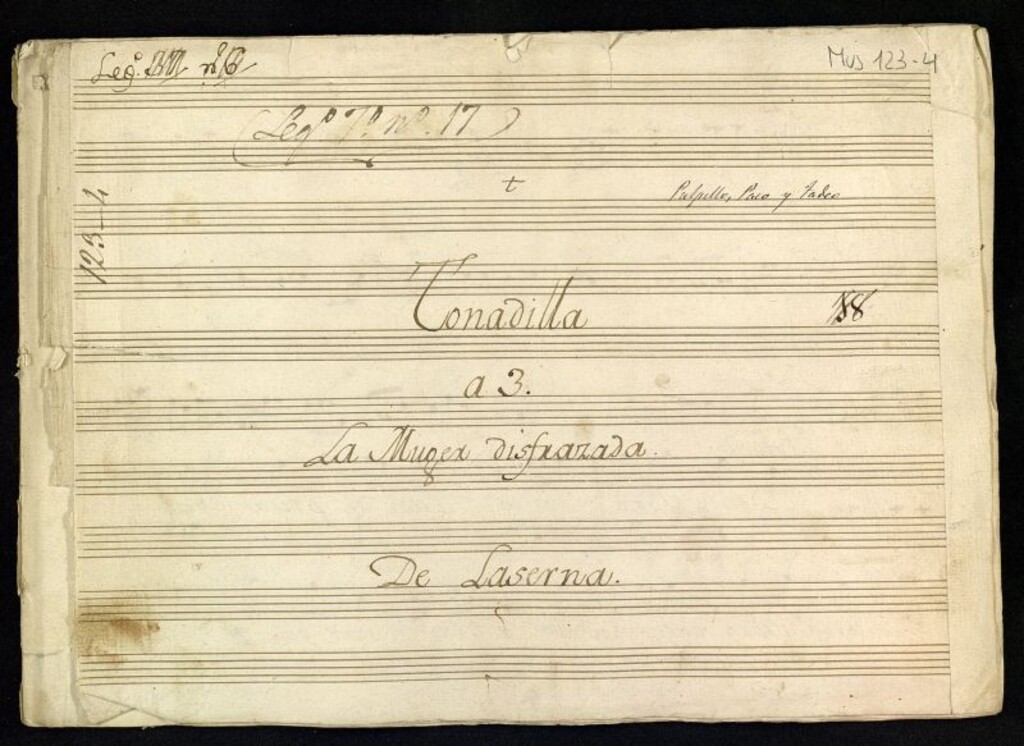 Leg.º nº 6
Mus 123-4
(Legº 7º nº. 17)
123-4
Pulpillo, Paco y Tadeo
Tonadilla
a 3.
La Muger disfrazada.
De Laserna.